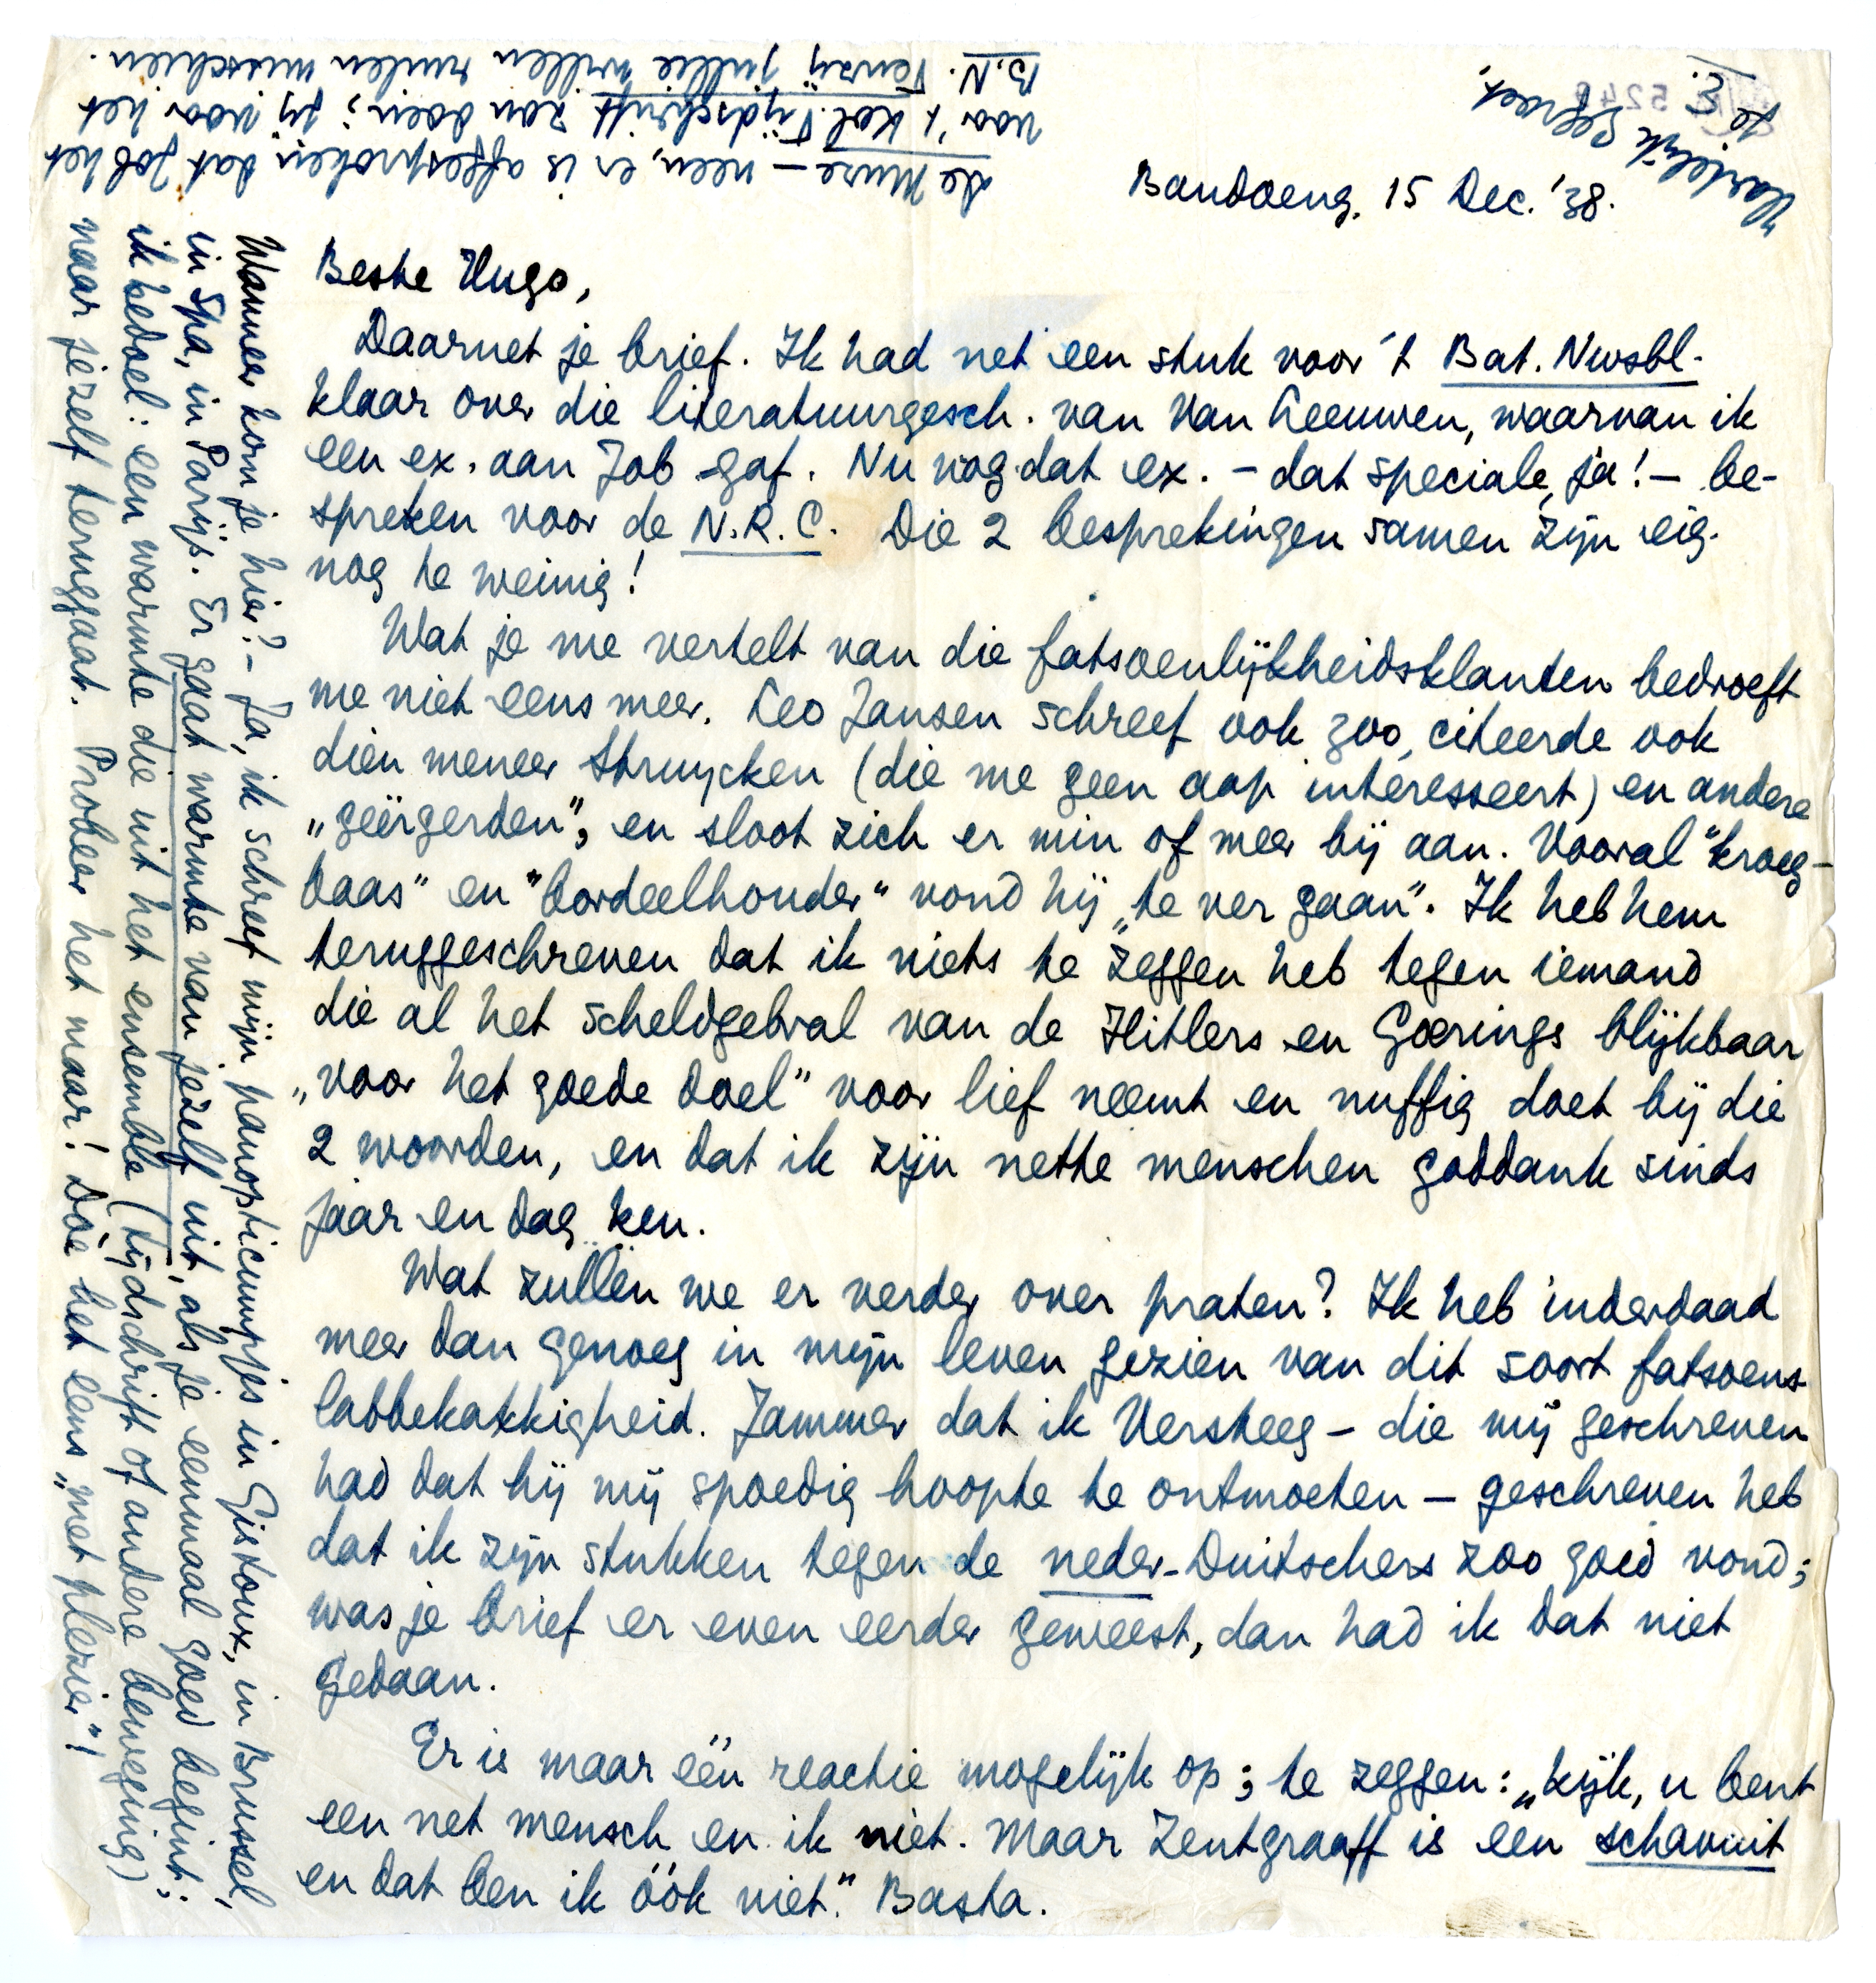 Bandoeng, 15 Dec. '38.
Beste Hugo,
Daarnet je brief. Ik had net een stuk voor 't Bat. Nwsbl.
klaar over die literatuurgesch. van Van Leeuwen, waarvan ik
een ex. aan Job gaf. Nu nog dat ex. - dat speciale, ja! - be-
spreken voor de N.R.C. Die 2 besprekingen samen zijn eig.
nog te weinig!
Wat je me vertelt van die fatsoenlijkheidsklanten bedroeft
me niet eens meer. Leo Jansen schreef ook zoo, citeerde ook
dien meneer Struycken (die me geen aap interesseert) en andere
„geërgerden", en sloot zich er min of meer bij aan. Vooral "kroeg-
baas" en "bordeelhouder" vond hij „te ver gaan". Ik heb hem
teruggeschreven dat ik niets te zeggen heb tegen iemand
die al het scheldgebral van de Hitlers en Goerings blijkbaar
„voor het goede doel" voor lief neemt en nuffig doet bij die
2 woorden, en dat ik zijn nette menschen goddank sinds
jaar en dag ken.
Wat zullen we er verder over praten? Ik heb inderdaad
meer dan genoeg in mijn leven gezien van dit soort fatsoens-
labbekakkigheid. Jammer dat ik Versteeg - die mij geschreven
had dat hij mij spoedig hoopte te ontmoeten - geschreven heb
dat ik zijn stukken tegen de neder-Duitschers zoo goed vond;
was je brief er even eerder geweest, dan had ik dat niet
gedaan.
Er is maar één reactie mogelijk op; te zeggen: „kijk, u bent
een net mensch en ik niet. Maar Zentgraaff is een schavuit
en dat ben ik óók niet." Basta.
Wanneer kom je hier? - Ja, ik schreef mijn panopticumpjs in Gistoux, in Brussel,
in Spa, in Parijs. Er gaat warmte van jezelf uit, als je eenmaal goed begint;
ik bedoel: een warmte die uit het ensemble (tijdschrift of andere beweging)
naar jezelf teruggaat. Probeer het maar! Dóe het eens „met plezier"!
de Muze - neen, er is afgesproken dat Job het
voor 't Kol. Tijdschrift zou doen; jij voor het
B.N. Tenzij jullie willen ruilen misschien.
Hartelijk gegroet,
je
E.